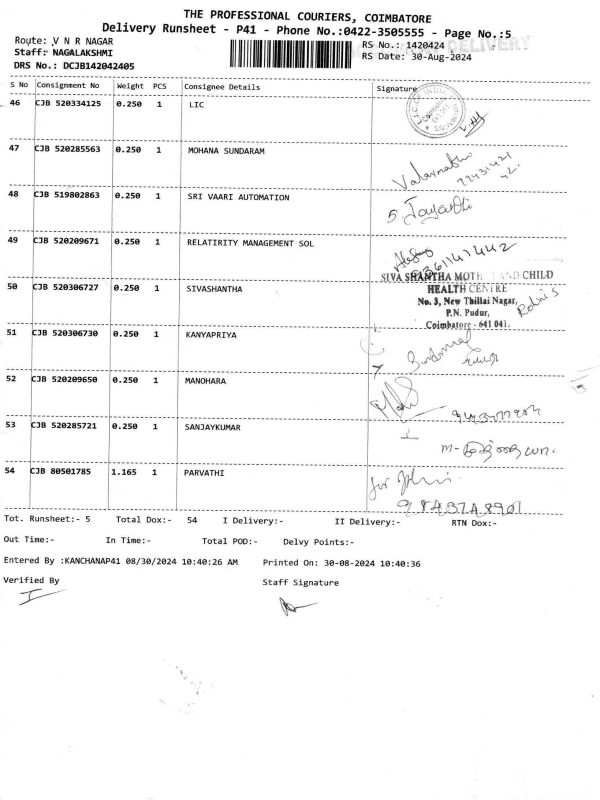 THE PROFESSIONAL COURIERS, COIMBATORE
Delivery Runsheet - P41 - Phone No.:0422-3505555 - Page No.:5
Route: V N R NAGAR RS No.: 1420424 DELIVERY
Staff: NAGALAKSHMI RS Date: 30-Aug-2024
DRS No.: DCJB142042405
S No Consignment No Weight PCS Consignee Details Signature
46 CJB 520334125 0.250 1 LIC
47 CJB 520285563 0.250 1 MOHANA SUNDARAM
48 CJB 519802863 0.250 1 SRI VAARI AUTOMATION
S. Jayanthi
49 CJB 520209671 0.250 1 RELATIRITY MANAGEMENT SOL
SIVA SHANTHA MOTH AND CHILD
50 CJB 520306727 0.250 1 SIVASHANTHA HEALTH CENTRE
No. 3, New Thillai Nagar,
P.N. Pudur,
Coimbatore - 641 041.
51 CJB 520306730 0.250 1 KANYAPRIYA
52 CJB 520209650 0.250 1 MANOHARA
53 CJB 520285721 0.250 1 SANJAYKUMAR
54 CJB 80501785 1.165 1 PARVATHI
Tot. Runsheet:- 5 Total Dox:- 54 I Delivery:- II Delivery:- RTN Dox:-
Out Time:- In Time:- Total POD:- Delvy Points:-
Entered By :KANCHANAP41 08/30/2024 10:40:26 AM Printed On: 30-08-2024 10:40:36
Verified By Staff Signature